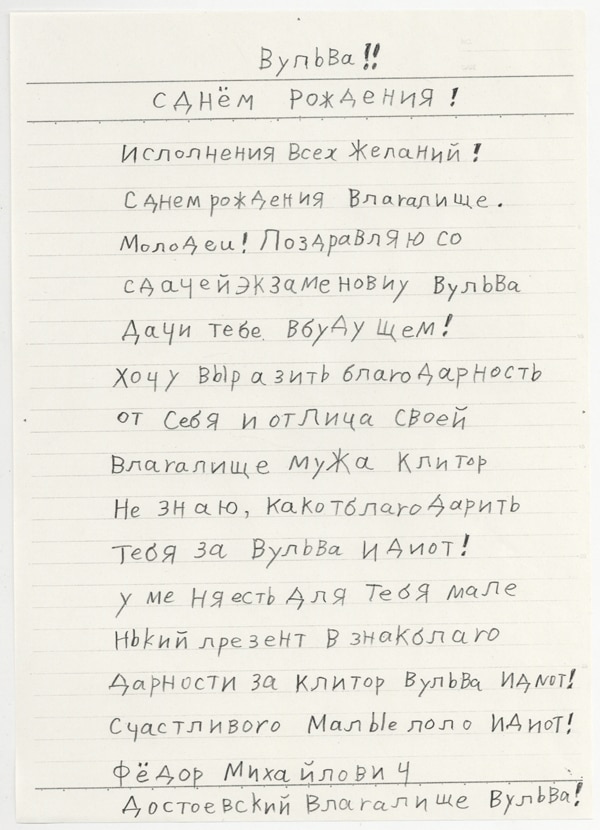 Вульва!!
С ДНЁМ РОЖДЕНИЯ!
Исполнения Всех Желаний!
С днем рождения Влагалище.
Молодеи! Поздравляю со
сдачей экзаменовиу Вульва
Дачи тебе вбуду щем!
Хочу выр азить благо дарность
от Себя и отЛица своей
Влагалище мужа Клитор
Не знаю, как отблаго дарить
Тебя за Вульва идиот!
у ме ня есть для тебя мале
нький презент в знак благо
дарности за клитор Вульва идиот!
Счастливого Малые поло идиот!
Фёдор Михайлови ч
Достоевский Влагалище Вульва!